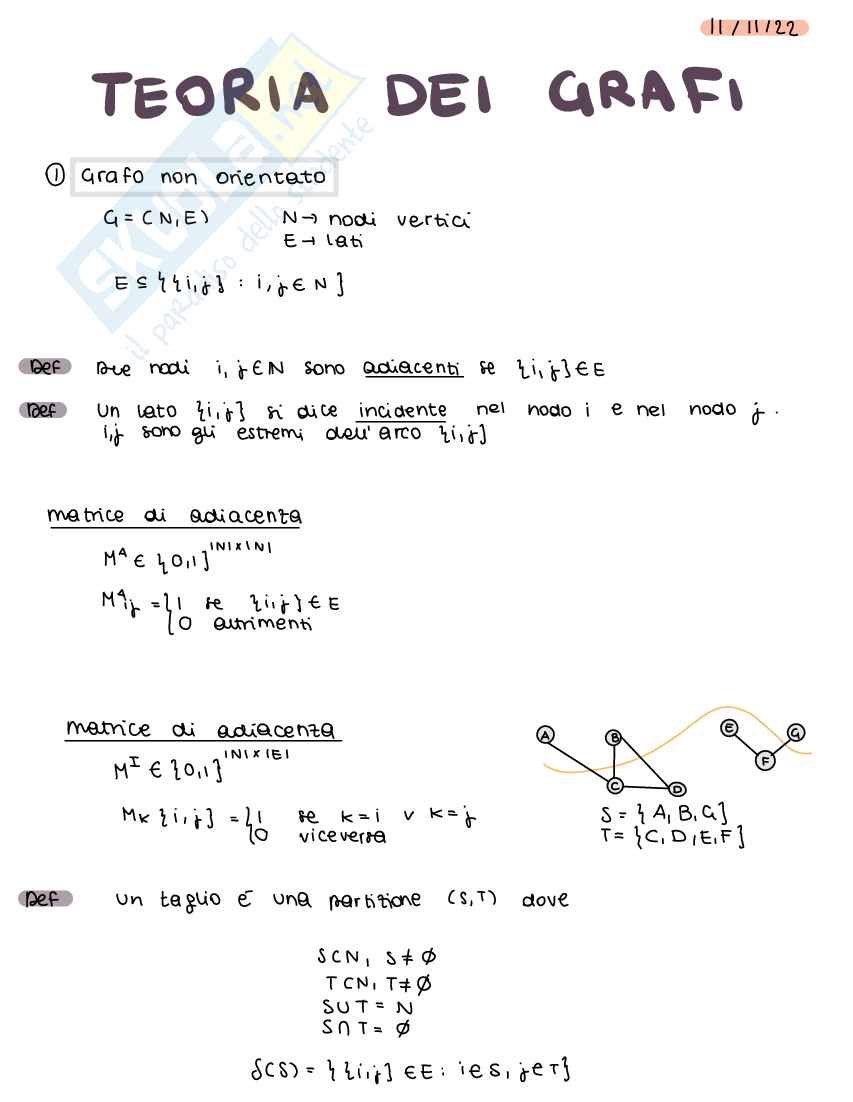 11/11/22
TEORIA DEI GRAFI
① Grafo non orientato
G = (N, E) N → nodi vertici
E → lati
E ⊆ {{i,j} : i,j ∈ N}
SKUOLA.net
il paradiso dello studente
Def Due nodi i, j ∈ N sono adiacenti se {i,j} ∈ E
Def Un lato {i,j} si dice incidente nel nodo i e nel nodo j.
i,j sono gli estremi dell'arco {i,j}
matrice di adiacenza
M^A ∈ {0,1}^|N|x|N|
M^A_ij = {1 se {i,j} ∈ E
{0 altrimenti
matrice di adiacenza
M^I ∈ {0,1}^|N|x|E|
M_k {i,j} = {1 se k=i v k=j
{0 viceversa
A B C D E F G
S = {A, B, G}
T = {C, D, E, F}
Def un taglio è una partizione (S,T) dove
S ⊂ N, S ≠ ∅
T ⊂ N, T ≠ ∅
S ∪ T = N
S ∩ T = ∅
δ(S) = {{i,j} ∈ E : i ∈ S, j ∈ T}